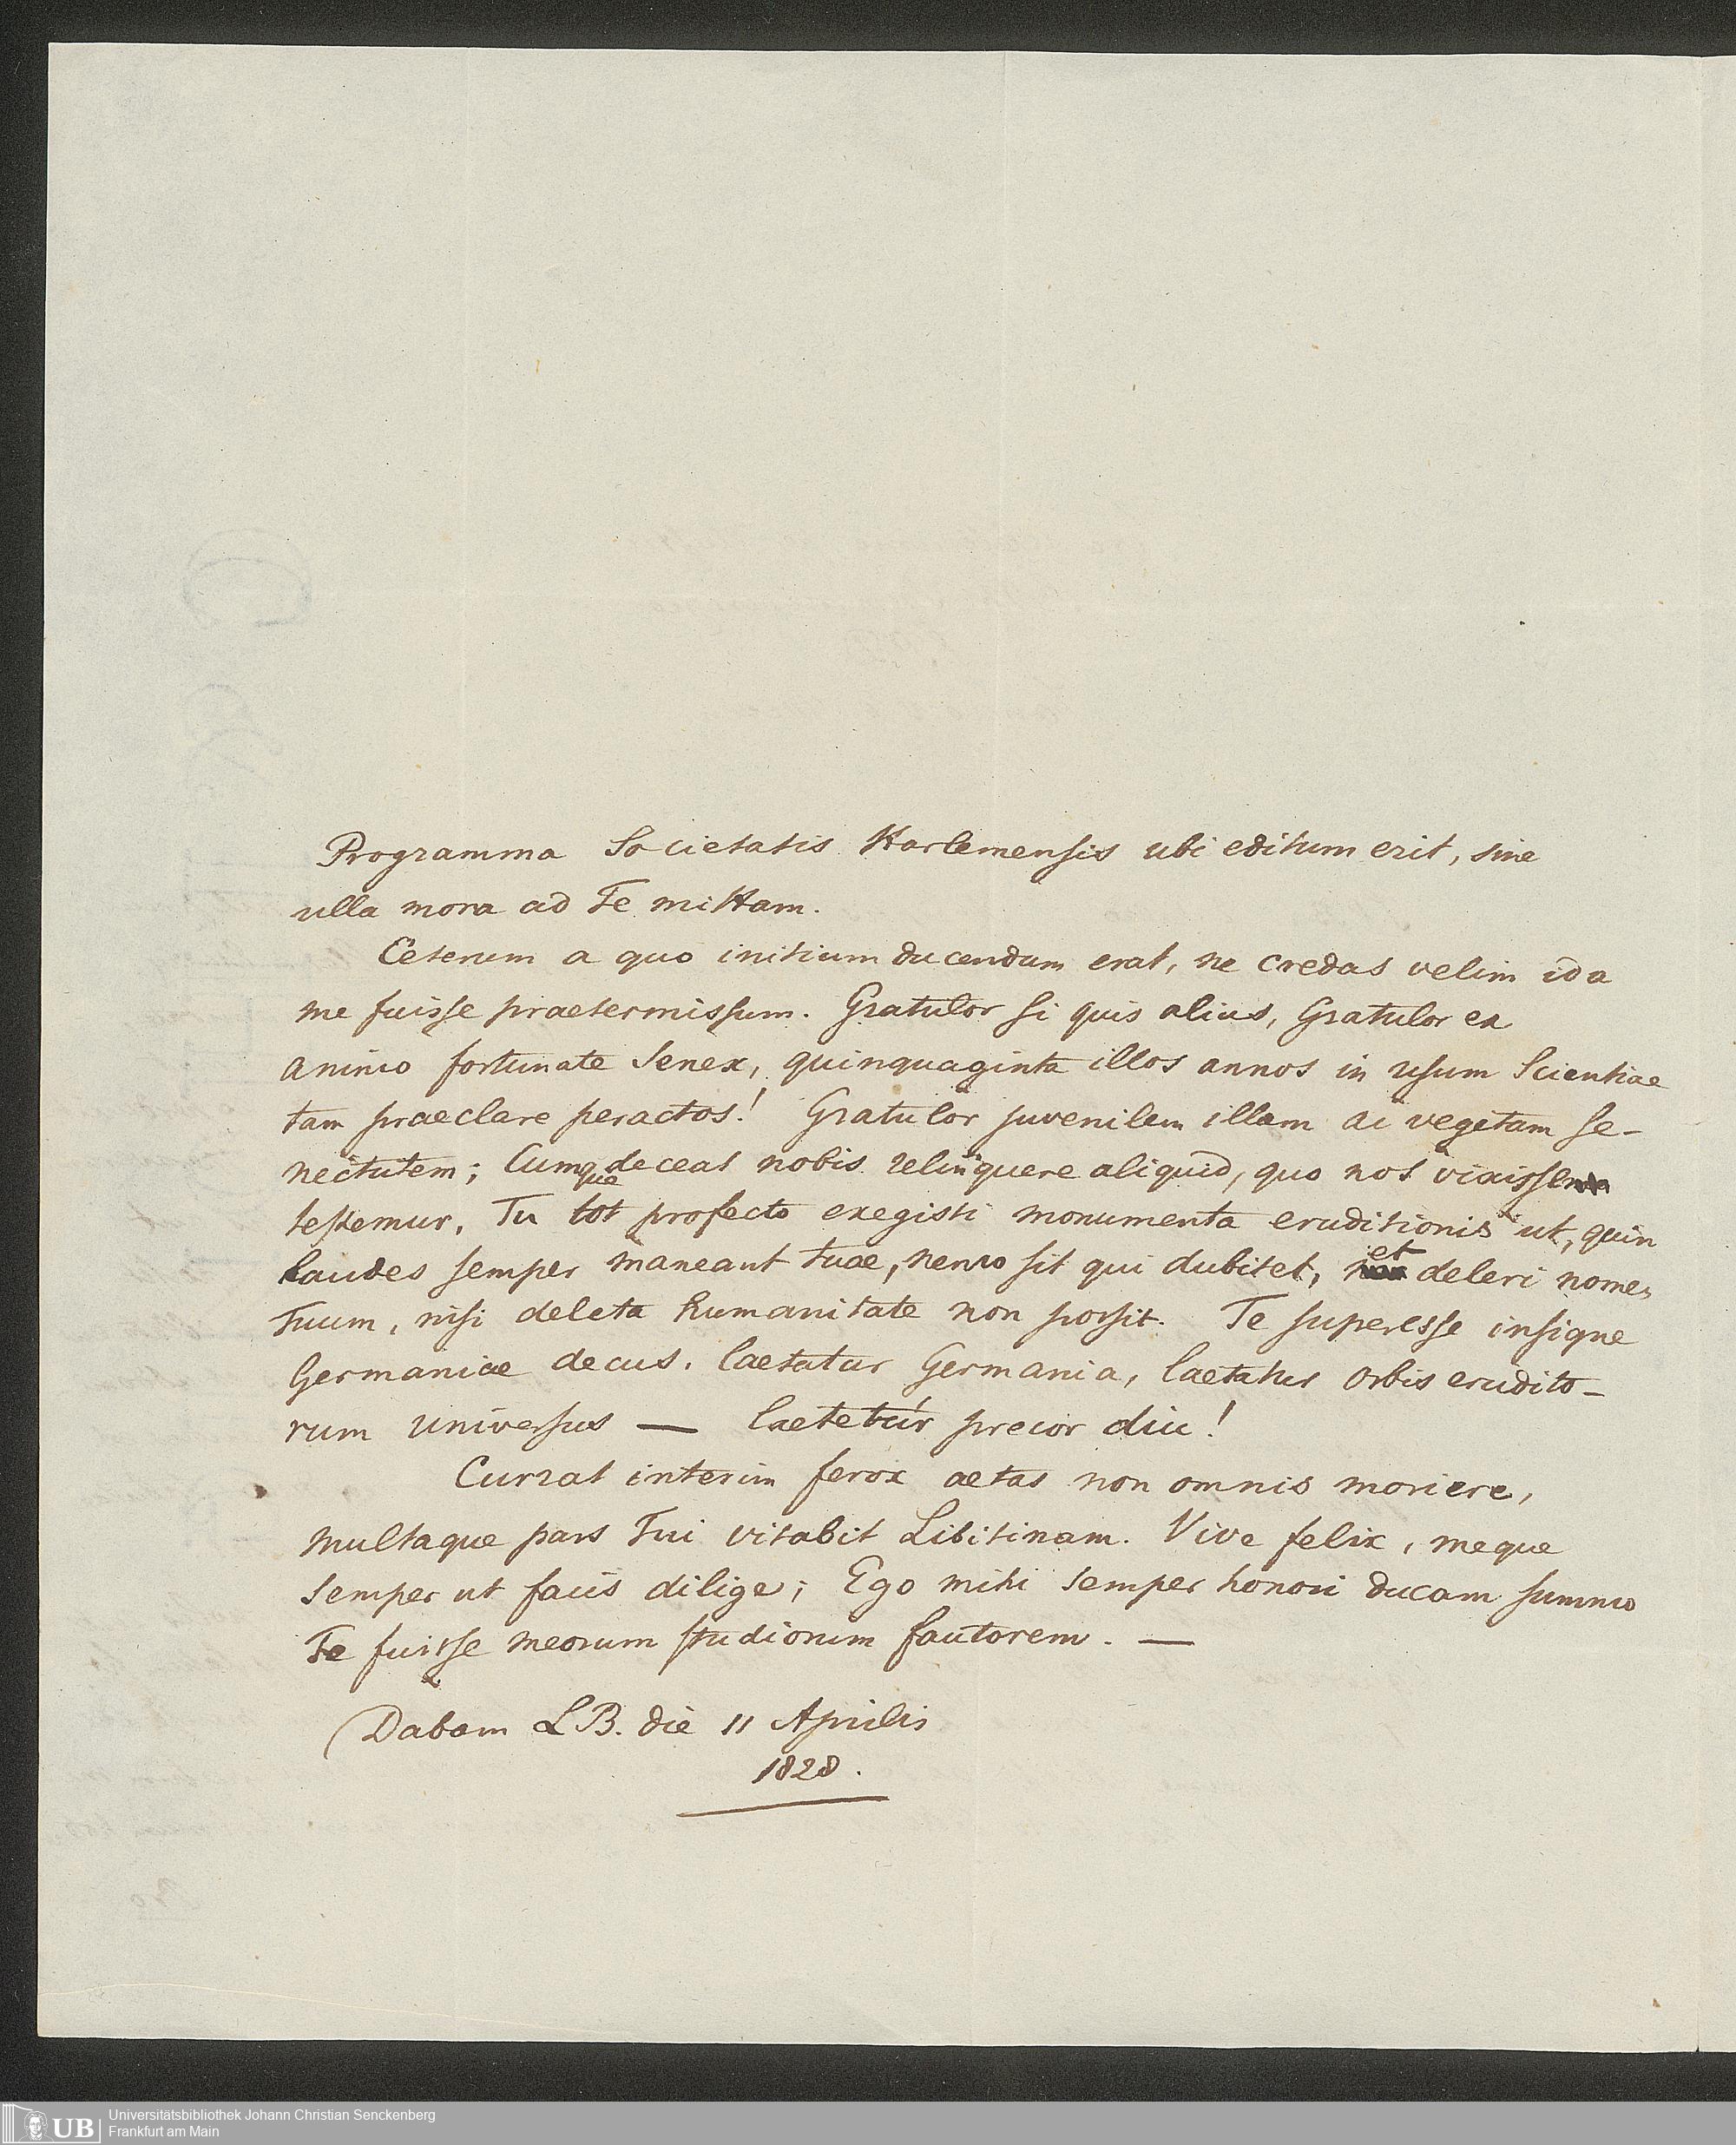 Programma Societatis Harlemensis ubi editum erit, sine
ulla mora ad Te mittam.
Ceterum a quo initium ducendum erat, ne credas velim id a
me fuisse praetermissum. Gratulor si quis alius, Gratulor ex
animo fortunate Senex, quinquaginta illos annos in usum Scientiae
tam praeclare peractos! Gratulor juvenilem illam ac vegetam se-
nectutem; Cumque deceat nobis relinquere aliquid, quo nos vixisse
testemur, Tu tot profecto exegisti monumenta eruditionis ut, quin
laudes semper maneant tuae, nemo sit qui dubitet, et deleri nomen
Tuum, nisi deleta humanitate non possit. Te superesse insigne
Germaniae decus, laetatur Germania, laetatur orbis erudito-
rum universus — laetetur precor diu!
Currat interim ferox aetas non omnis moriere,
multaque pars Tui vitabit Libitinam. Vive felix, meque
semper ut facis dilige; Ego mihi semper honori ducam summo
Te fuisse meorum studiorum fautorem. —
Dabam L B. die 11 Aprilis
1828.
UB Universitätsbibliothek Johann Christian Senckenberg
Frankfurt am Main